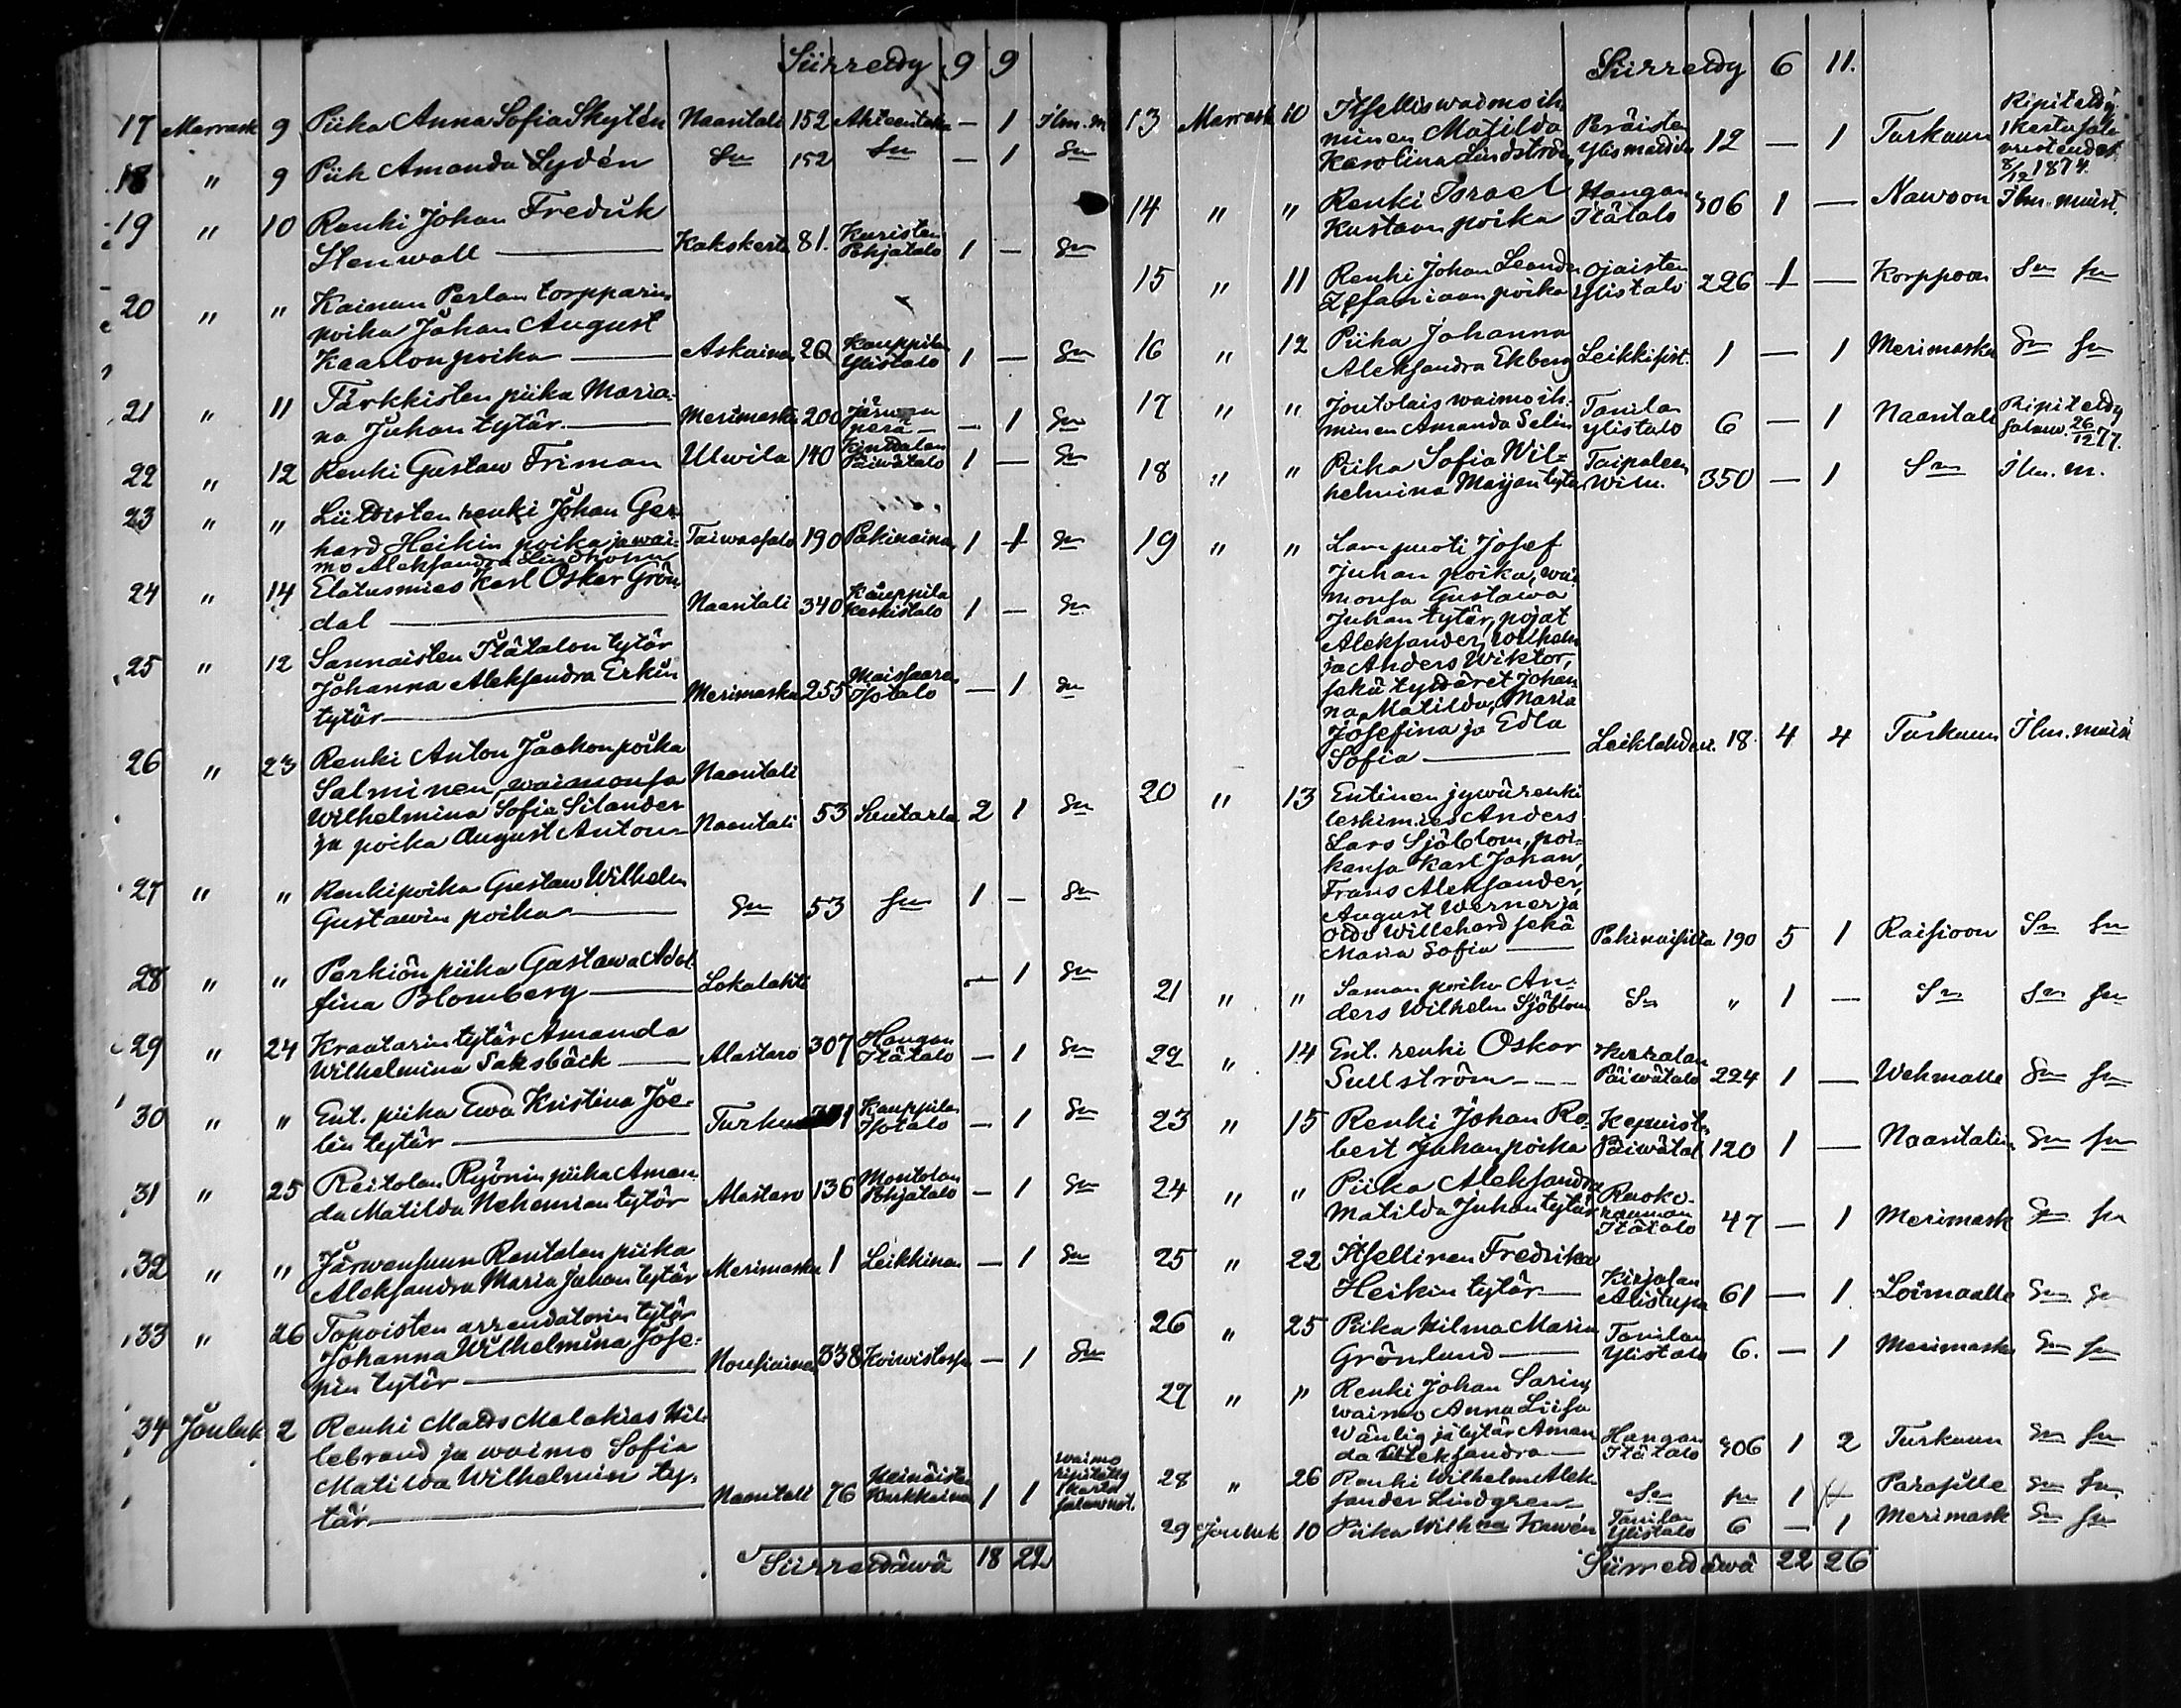 Siirretty 9 9
17 Marrask 9 Piika Anna Sofia Skytén Naantali 152 — 1 Ilm. m
18 " 9 Piik Amanda Lydén Sn 152 Sn — 1 Sn
19 " 10 Renki Johan Fredrik
Stenwall — Kakskerta 81. Kuristen Pohjatalo 1 — Sn
20 " " Kainun Perlan torpparin
poika Johan August
Kaarlon poika — Askainen 20 Kauppilan Ylistalo 1 — Sn
21 " 11 Tärkkisten piika Maria-
na Juhan tytär — Merimasku 200 Järwen perä — 1 Sn
22 " 12 Renki Gustaw Friman Ulwila 140 Päiwätalo 1 — Sn
23 " " renki Johan Ger-
hard Heikin poika ja wai-
mo Aleksandra Lindholm Taiwassalo 190 Pakinainen 1 1 Sn
24 " 14 Elatusmies Karl Oskar Grön-
dal — Naantali 340 Kauppila Keskitalo 1 — Sn
25 " 12 Sannaisten Itätalon tytär
Johanna Aleksandra Erkin
tytär — Merimasku 255 Maissaaren Isotalo — 1 Sn
26 " 23 Renki Anton Jaakon poika
Salminen, waimonsa Naantali
Wilhelmina Sofia Silander
ja poika August Anton Naantali 53 Luutarla 2 1 Sn
27 " " Renkipoika Gustaw Wilhelm
Gustawin poika — Sn 53 Sn 1 — Sn
28 " " Perkiön piika Gustawa Adol-
fina Blomberg — Lokalahti — 1 Sn
29 " 24 Kraatarin tytär Amanda
Wilhelmina Saksbäck — Alastaro 307 Hangan Itätalo — 1 Sn
30 " " Ent. piika Ewa Kristina Joe-
lin tytär — Turku Kauppilan Isotalo — 1 Sn
31 " 25 Reitolan Ryönin piika Aman-
da Matilda Nehemian tytär Alastaro 136 Montolan Pohjatalo — 1 Sn
32 " " Järwensuun Rantalan piika
Aleksandra Maria Juhan tytär Merimasku 1 Leikkinen — 1 Sn
33 " 26 Topoisten arrendatorin tytär
Johanna Wilhelmina Jose-
pin tytär — Nousiainen 338 Koiwistossa — 1 Sn
34 Jouluk 2 Renki Matts Malakias Hil-
lebrand ja waimo Sofia
Matilda Wilhelmin ty-
tär — Naantali 76 1 1 waimo ripitetty
Siirrettäwä 18 22
Siirretty 6 11.
13 Marrask 10 Itsellis waimo ih-
minen Matilda
Karolina Lindström Peräisten 12 — 1 Turkuun Ripitetty 8/12 1874.
14 " " Renki Israel
Kustaan poika Hangan Itätalo 306 1 — Nawoon Ilm. muist.
15 " 11 Renki Johan Leander
Zefanian poika Ojaisten Ylistalo 226 1 — Korppoon Sn Sn
16 " 12 Piika Johanna
Aleksandra Ekberg Leikkisist. 1 — 1 Merimasku Sn Sn
17 " " Joutolais waimo ih-
minen Amanda Selin Tanilan ylistalo 6 — 1 Naantali Ripitetty 26/12 77.
18 " " Piika Sofia Wil-
helmina Marjan tytär Taipaleen 350 — 1 Sn Ilm. m.
19 " " Lampuoti Josef
Juhan poika, wai-
monsa Gustawa
Juhan tytär, pojat
Aleksander, Wilhelm
ja Anders Wiktor,
sekä tyttäret Johan-
na, Matilda, Maria
Josefina ja Edla
Sofia — 18. 4 4 Turkuun Ilm. muist
20 " 13 Entinen jywärenki
leskimies Anders
Lars Sjöblom, poi-
kansa Karl Johan,
Frans Aleksander,
August Werner ja
Otto Willehard sekä
Maria Sofia — Pakinaisilta 190 5 1 Raisioon Sn Sn
21 " " Saman poika An-
ders Wilhelm Sjöblom Sn " 1 — Sn Sn Sn
22 " 14 Ent. renki Oskar
Sullström — Päiwätalo 224 1 — Wehmalle Sn Sn
23 " 15 Renki Johan Ro-
bert Juhan poika Päiwätal. 120 1 — Naantaliin Sn Sn
24 " " Piika Aleksandra
Matilda Juhan tytär Ruokorauman Itätalo 47 — 1 Merimask Sn Sn
25 " 22 Itsellinen Fredrika
Heikin tytär — Kirjalan Alistupa 61 — 1 Loimaalle Sn Sn
26 " 25 Piika Hilma Maria
Grönlund — Tanilan Ylistalo 6. — 1 Merimasku Sn Sn
27 " " Renki Johan Sarin,
waimo Anna Liisa
Wänlig ja tytär Aman-
da Aleksandra — Hangan Itätalo 306 1 2 Turkuun Sn Sn
28 " 26 Renki Wilhelm Alek-
sander Lindgren Sn Sn 1 Paraisille Sn Sn
29 Jouluk 10 Piika Wilh:na Kawén Tanilan Ylistalo 6 — 1 Merimask Sn Sn
Siirrettäwä 22 26